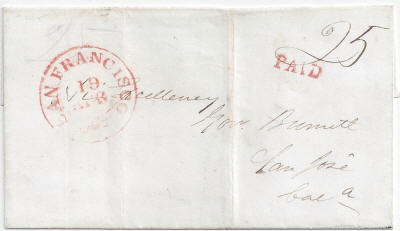 25
PAID
SAN FRANCISCO
19
APR
Excellency
Gov. Burnett
San José
Cal a